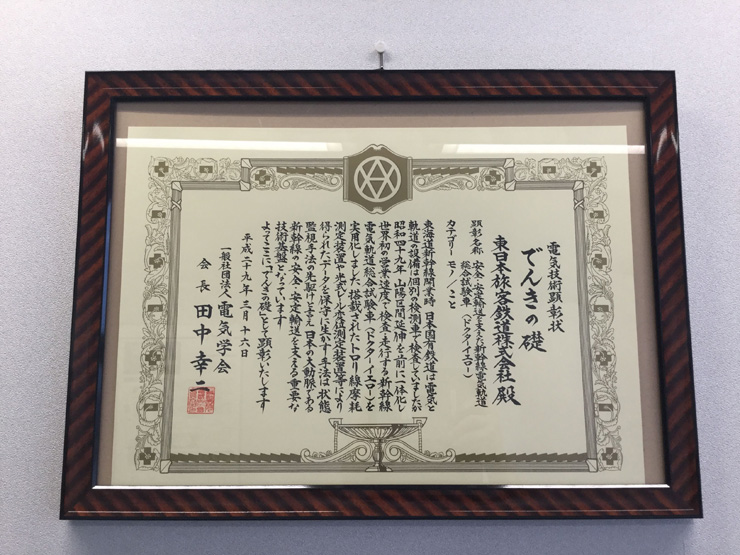 電気技術顕彰状
でんきの礎
東日本旅客鉄道株式会社 殿
顕彰名称 安全・安定輸送を支えた新幹線電気軌道
総合試験車(ドクターイエロー)
カテゴリー モノ/こと
東海道新幹線開業時 日本国有鉄道は 電気と
軌道の設備は個別の検測車で検査していましたが
昭和四十九年 山陽区間延伸を前に一体化し
世界初の営業速度で検査・走行する新幹線
電気軌道総合試験車(ドクターイエロー)を
実用化しました 搭載されたトロリ線摩耗
測定装置や光式レール変位測定装置等により
得られたデータを保守に生かす手法は 状態
監視手法の先駆けと言え 日本の大動脈である
新幹線の安全・安定輸送を支える重要な
技術基盤となっています
よってここに「でんきの礎」として顕彰いたします
平成二十九年 三月 十六日
一般社団法人 電気学会
会長 田中幸二